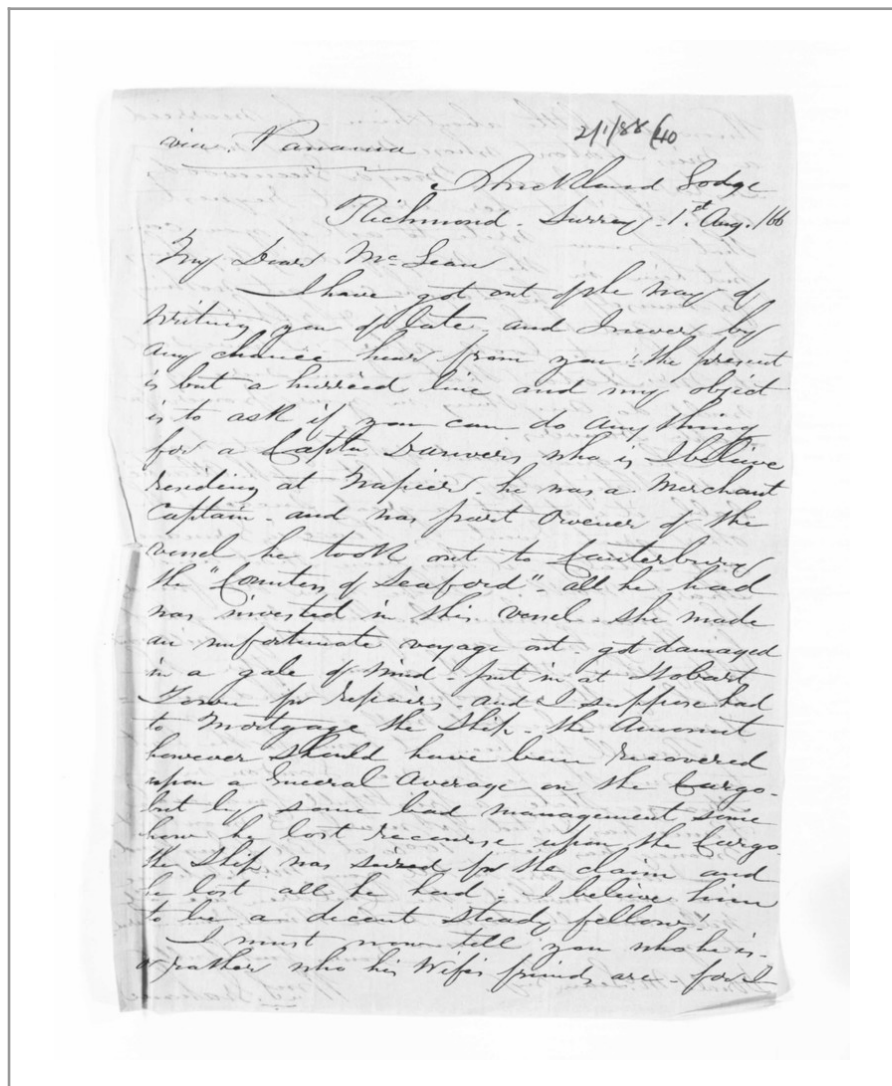 2/1/88 (40
via. Panama
Strickland Lodge
Richmond. Surrey. 1st Aug. /66
My Dear McLean
I have got out of the way of
writing you of late, and I never by
any chance hear from you! the present
is but a hurried line and my object
is to ask if you can do any thing
for a Captn Danvers who is I believe
residing at Napier. he was a Merchant
Captain. and was part Owener of the
vessel he took out to Canterbury
the "Countess of Seaford". all he had
was invested in this vessel. she made
an unfortunate voyage out. got damaged
in a gale of wind. put in at Hobart
Town for repairs. and I suppose had
to Mortgage the Ship. the Amount
however should have been recovered
upon a General Average on the Cargo.
but by some bad management some
how he lost recourse upon the Cargo.
the Ship was seized for the claim and
he lost all he had. I believe him
to be a decent steady fellow!
I must now tell you who he is.
or rather who his Wife's friends are - for I